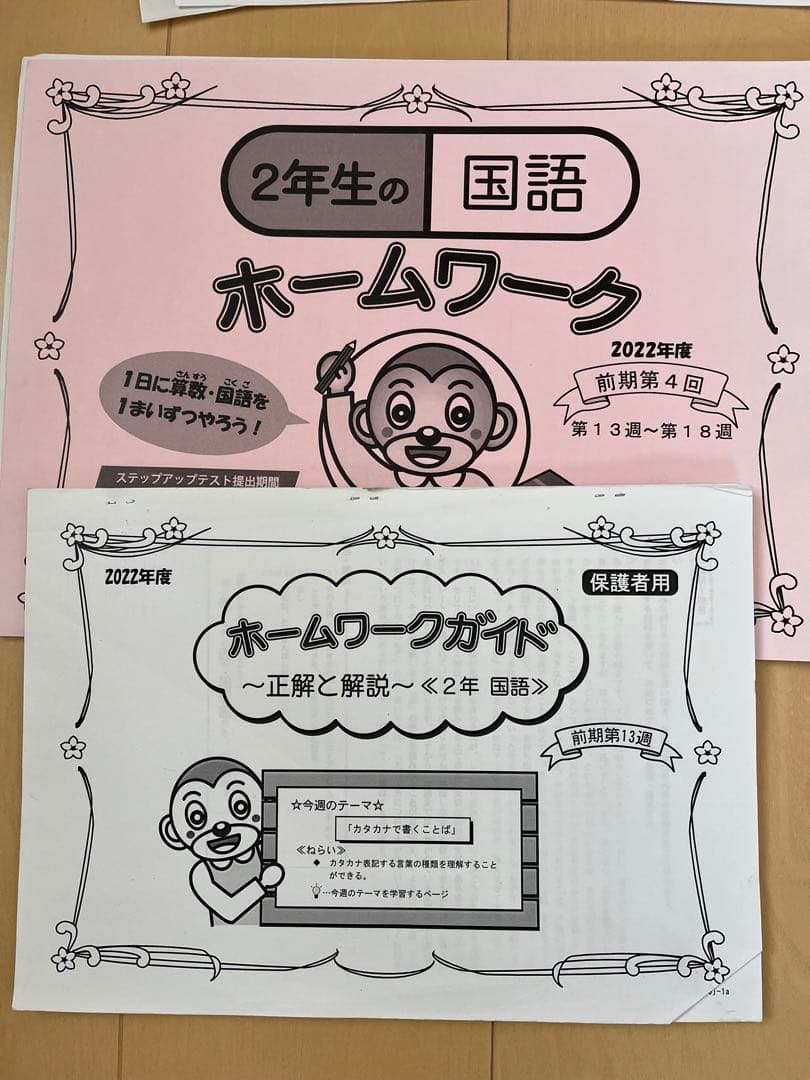 2年生の 国語
ホームワーク
2022年度
前期第4回
第13週～第18週
さんすう こくご
1日に算数・国語を
1まいずつやろう！
ステップアップテスト提出期間
2022年度
保護者用
ホームワークガイド
～正解と解説～≪2年 国語≫
前期第13週
☆今週のテーマ☆
「カタカナで書くことば」
≪ねらい≫
◆ カタカナ表記する言葉の種類を理解すること
ができる。
…今週のテーマを学習するページ